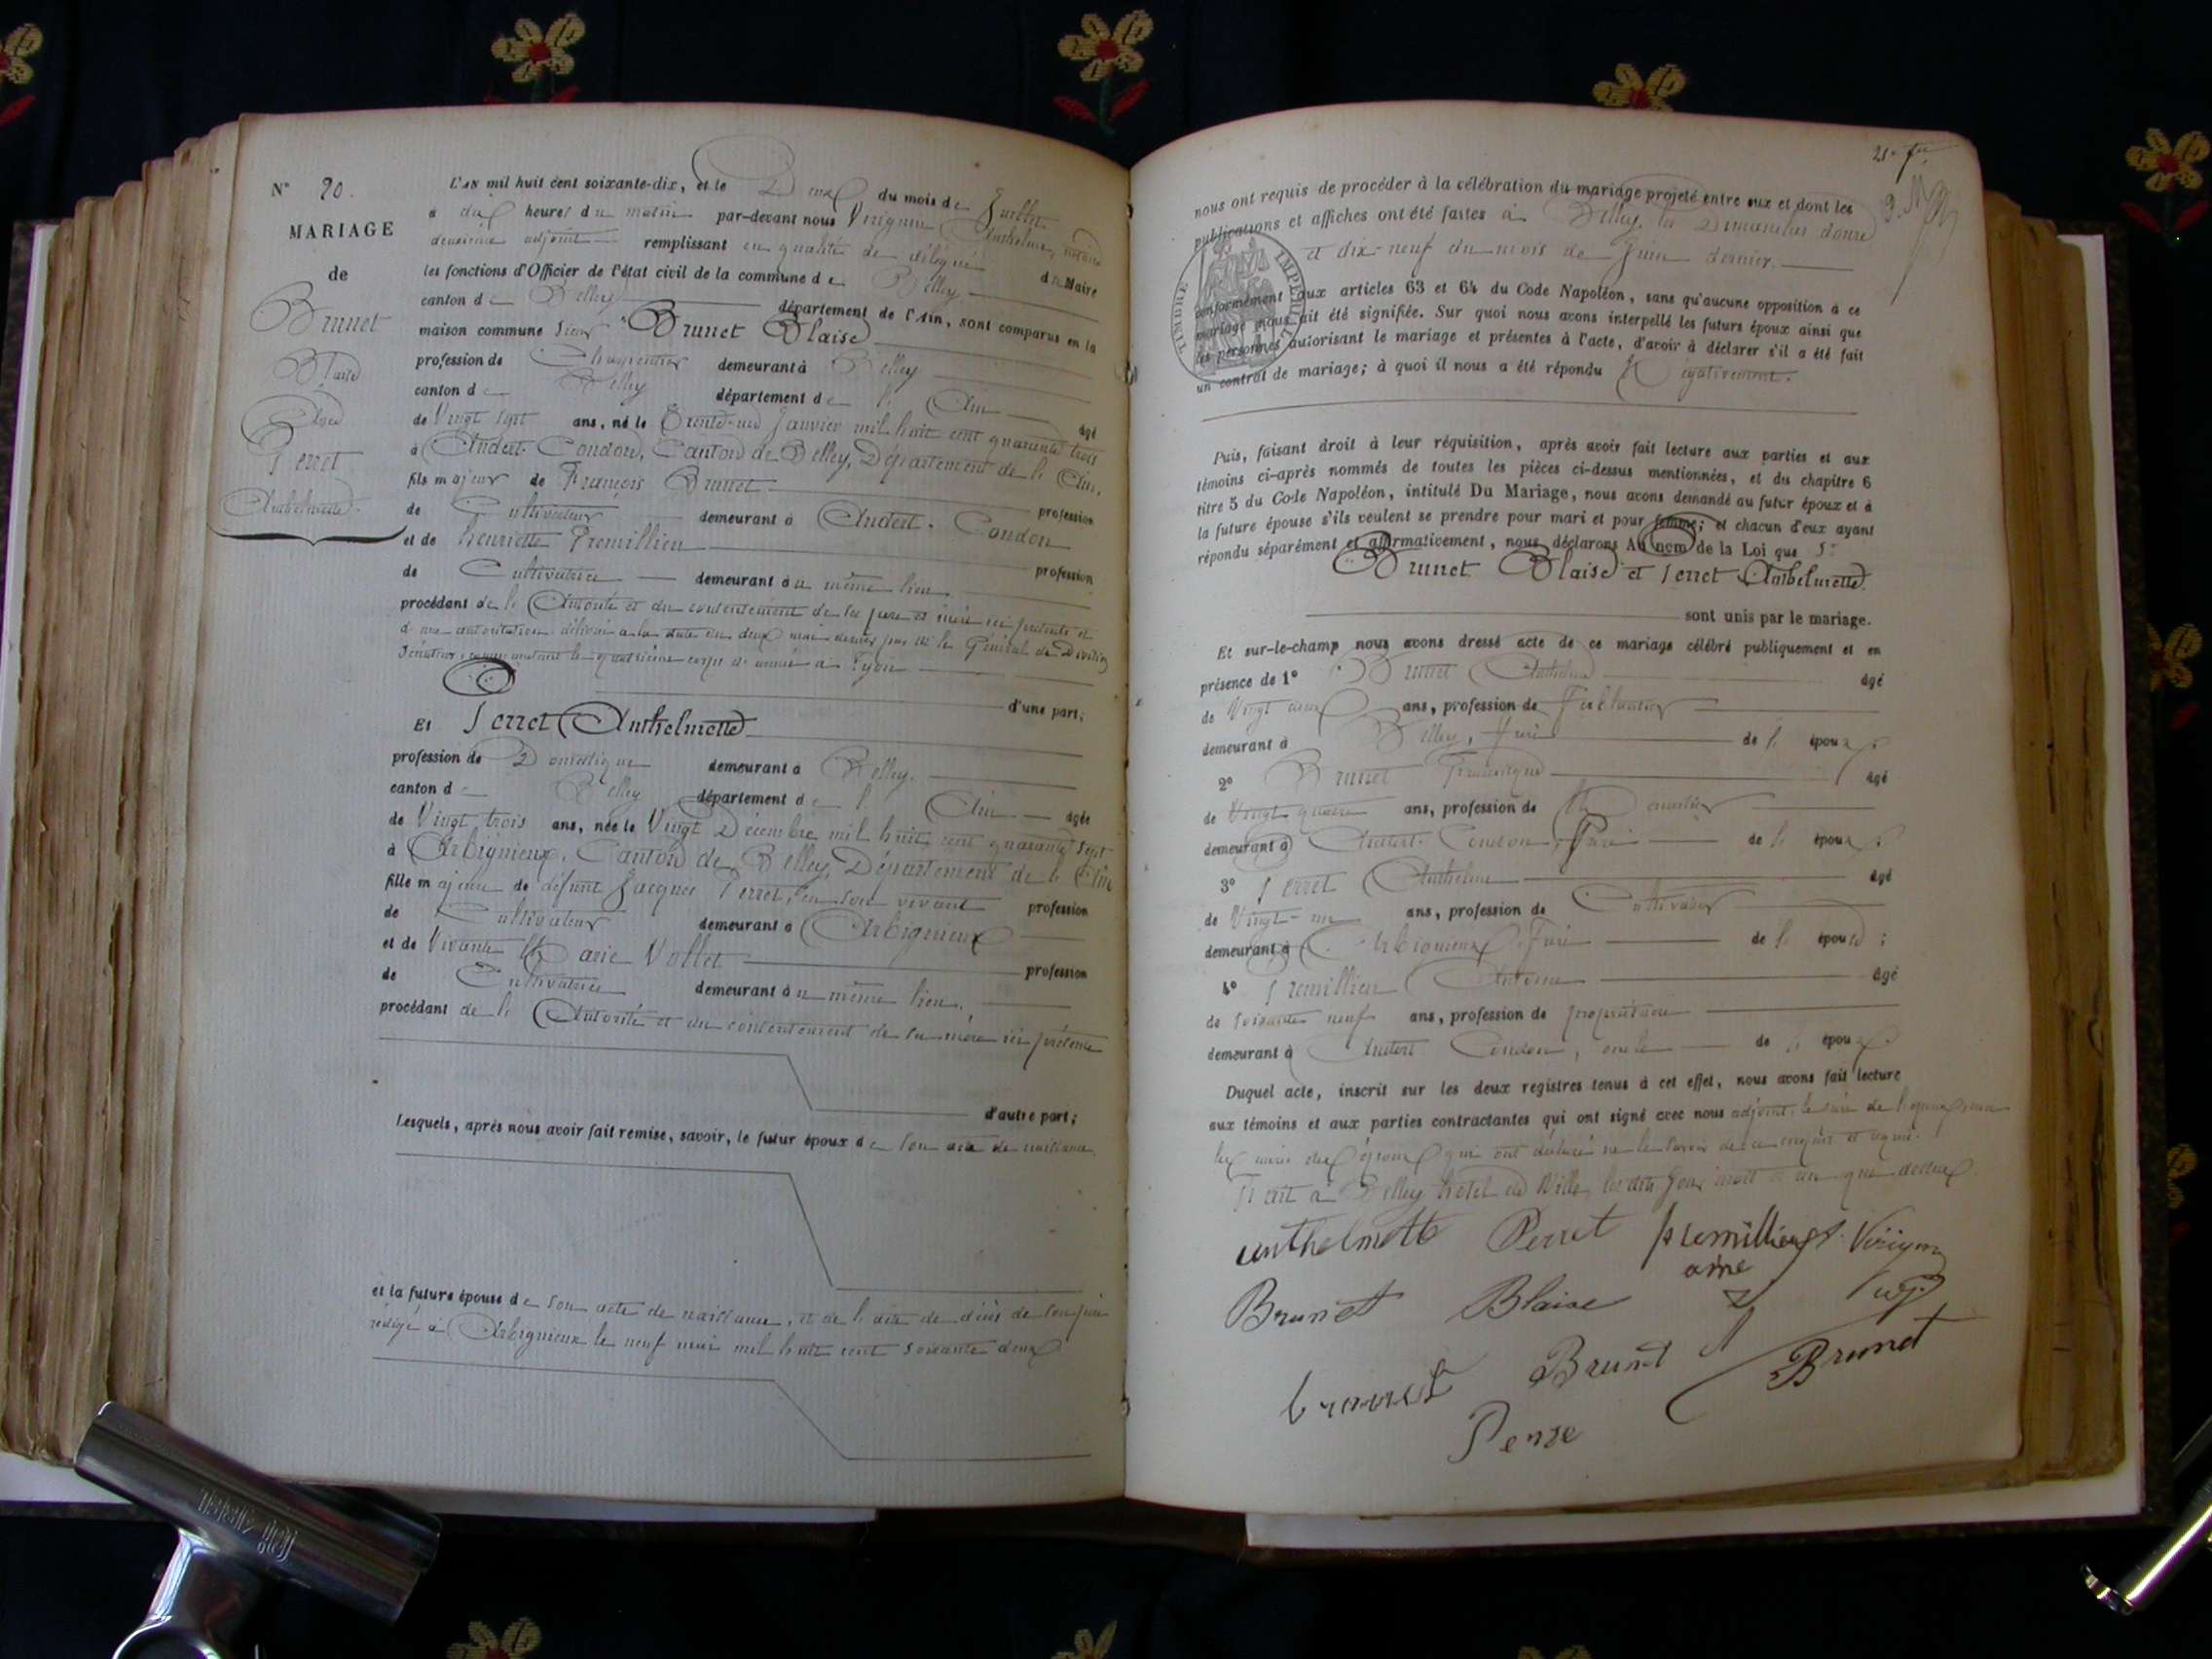 N° 20.
MARIAGE
de
Brunet
Blaise
Et
Perret
Anthelmette
L'AN mil huit cent soixante-dix, et le Deux du mois de Juillet
à dix heures du matin par-devant nous Virignin Anthelme, notaire
deuxième adjoint remplissant en qualité de délégué du Maire
les fonctions d'Officier de l'état civil de la commune de Belley
canton de Belley département de l'Ain, sont comparus en la
maison commune Sieur Brunet Blaise
profession de Charpentier demeurant à Belley
canton de Belley département de l'Ain âgé
de Vingt sept ans, né le Trente-un Janvier mil huit cent quarante trois
à Andert-Condon, Canton de Belley, Département de l'Ain,
fils majeur de François Brunet profession
de Cultivateur demeurant à Andert-Condon
et de henriette Premillieu profession
de Cultivatrice demeurant au même lieu,
procédant de l'Autorité et du consentement de ses père et mère ici présents et
d'une autorisation délivrée à la date du deux mai dernier par Mr le Général de Division
Sénateur, commandant le quatrième corps d'armée à Lyon
d'une part;
Et Perret Anthelmette
profession de Domestique demeurant à Belley.
canton de Belley département de l'Ain âgée
de Vingt trois ans, née le Vingt Décembre mil huit cent quarante sept
à Arbignieux, Canton de Belley, Département de l'Ain
fille majeure de défunt Jacques Perret, en son vivant profession
de Cultivateur demeurant à Arbignieux
et de Vivante Marie Vollet profession
de Cultivatrice demeurant au même lieu,
procédant de l'Autorité et du consentement de sa mère ici présente
d'autre part;
Lesquels, après nous avoir fait remise, savoir, le futur époux de son acte de naissance,
et la future épouse de son acte de naissance, et de l'acte de décès de son père
rédigé à Arbignieux le neuf mai mil huit cent soixante deux
nous ont requis de procéder à la célébration du mariage projeté entre eux et dont les
publications et affiches ont été faites à Belley, les Dimanches douze
et dix-neuf du mois de Juin dernier.
TIMBRE IMPÉRIAL
conformément aux articles 63 et 64 du Code Napoléon, sans qu'aucune opposition à ce
mariage nous ait été signifiée. Sur quoi nous avons interpellé les futurs époux ainsi que
les personnes autorisant le mariage et présentes à l'acte, d'avoir à déclarer s'il a été fait
un contrat de mariage; à quoi il nous a été répondu Négativement.
Puis, faisant droit à leur réquisition, après avoir fait lecture aux parties et aux
témoins ci-après nommés de toutes les pièces ci-dessus mentionnées, et du chapitre 6
titre 5 du Code Napoléon, intitulé Du Mariage, nous avons demandé au futur époux et à
la future épouse s'ils veulent se prendre pour mari et pour femme; et chacun d'eux ayant
répondu séparément et affirmativement, nous déclarons Au nom de la Loi que Sr
Brunet Blaise et Perret Anthelmette
sont unis par le mariage.
Et sur-le-champ nous avons dressé acte de ce mariage célébré publiquement et en
présence de 1° Brunet Anthelme âgé
de Vingt deux ans, profession de Ferblantier
demeurant à Belley, frère de l'époux;
2° Brunet âgé
de Vingt quatre ans, profession de
demeurant à Andert-Condon, frère de l'époux;
3° Perret Anthelme âgé
de Vingt-un ans, profession de Cultivateur
demeurant à Arbignieux, frère de l'épouse;
4° Premillieu Antoine âgé
de soixante neuf ans, profession de propriétaire
demeurant à Andert Condon, oncle de l'époux.
Duquel acte, inscrit sur les deux registres tenus à cet effet, nous avons fait lecture
aux témoins et aux parties contractantes qui ont signé avec nous adjoint, le père de l'époux, non
les mères des époux qui ont déclaré ne le savoir de ce enquis et requis.
Fait à Belley hôtel de Ville, les dits jour, mois et an que dessus
anthelmette Perret premillieu A. Virignin
aîné adj.
Brunet Blaise
brunet Brunet Brunet